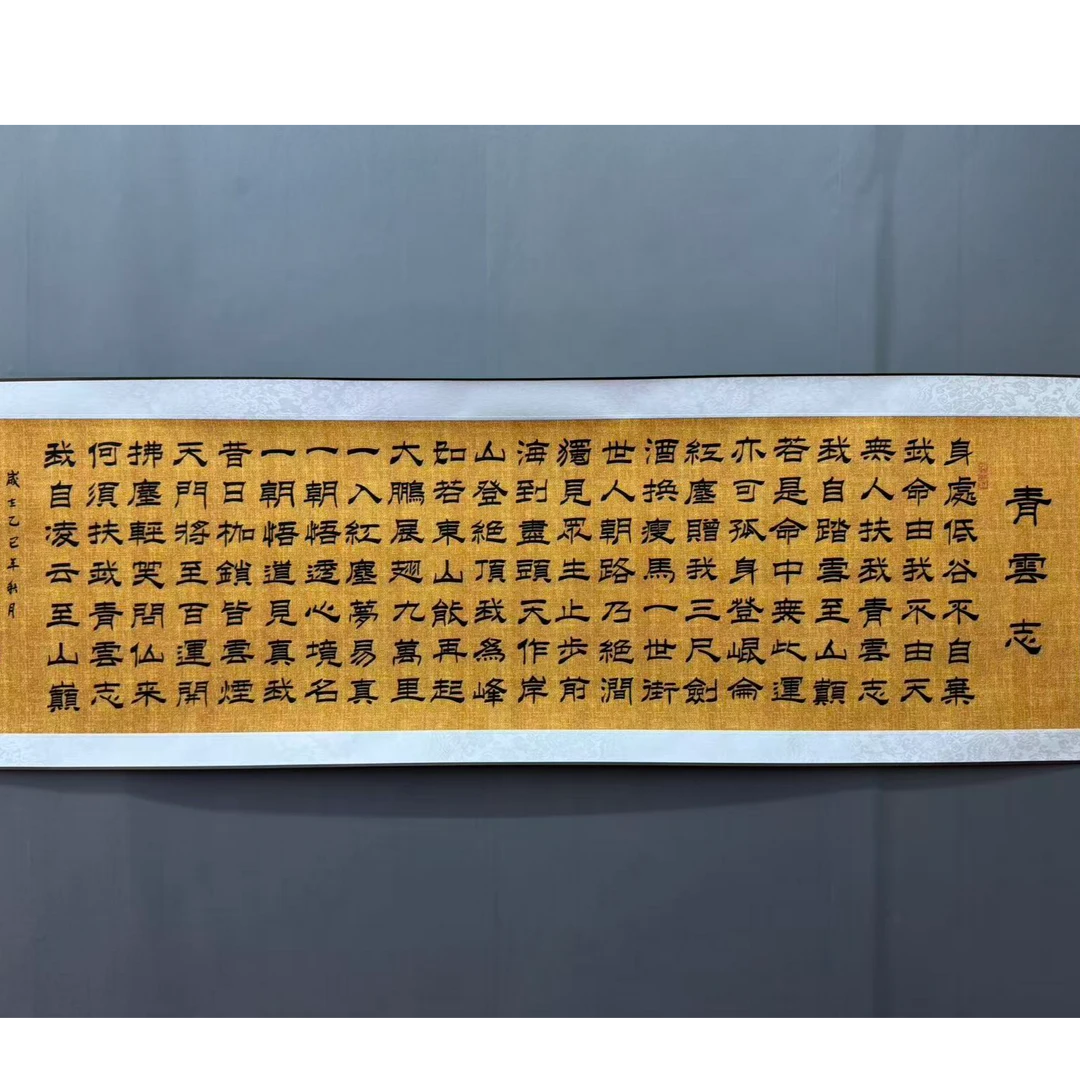 青雲志
身處低谷不自棄
我命由我不由天
無人扶我青雲志
我自踏雲至山巔
若是命中無此運
亦可孤身登崐侖
紅塵贈我三尺劍
酒換瘦馬一世街
世人朝路乃絕澗
獨見眾生止步前
海到盡頭天作岸
山登絕頂我為峰
如若東山能再起
大鵬展翅九萬里
一入紅塵夢易真
一朝悟透心境名
一朝悟道見真我
昔日枷鎖皆雲煙
天門將至百運開
拂塵輕笑問仙來
何須扶我青雲志
我自凌云至山巔
歲在乙巳年秋月